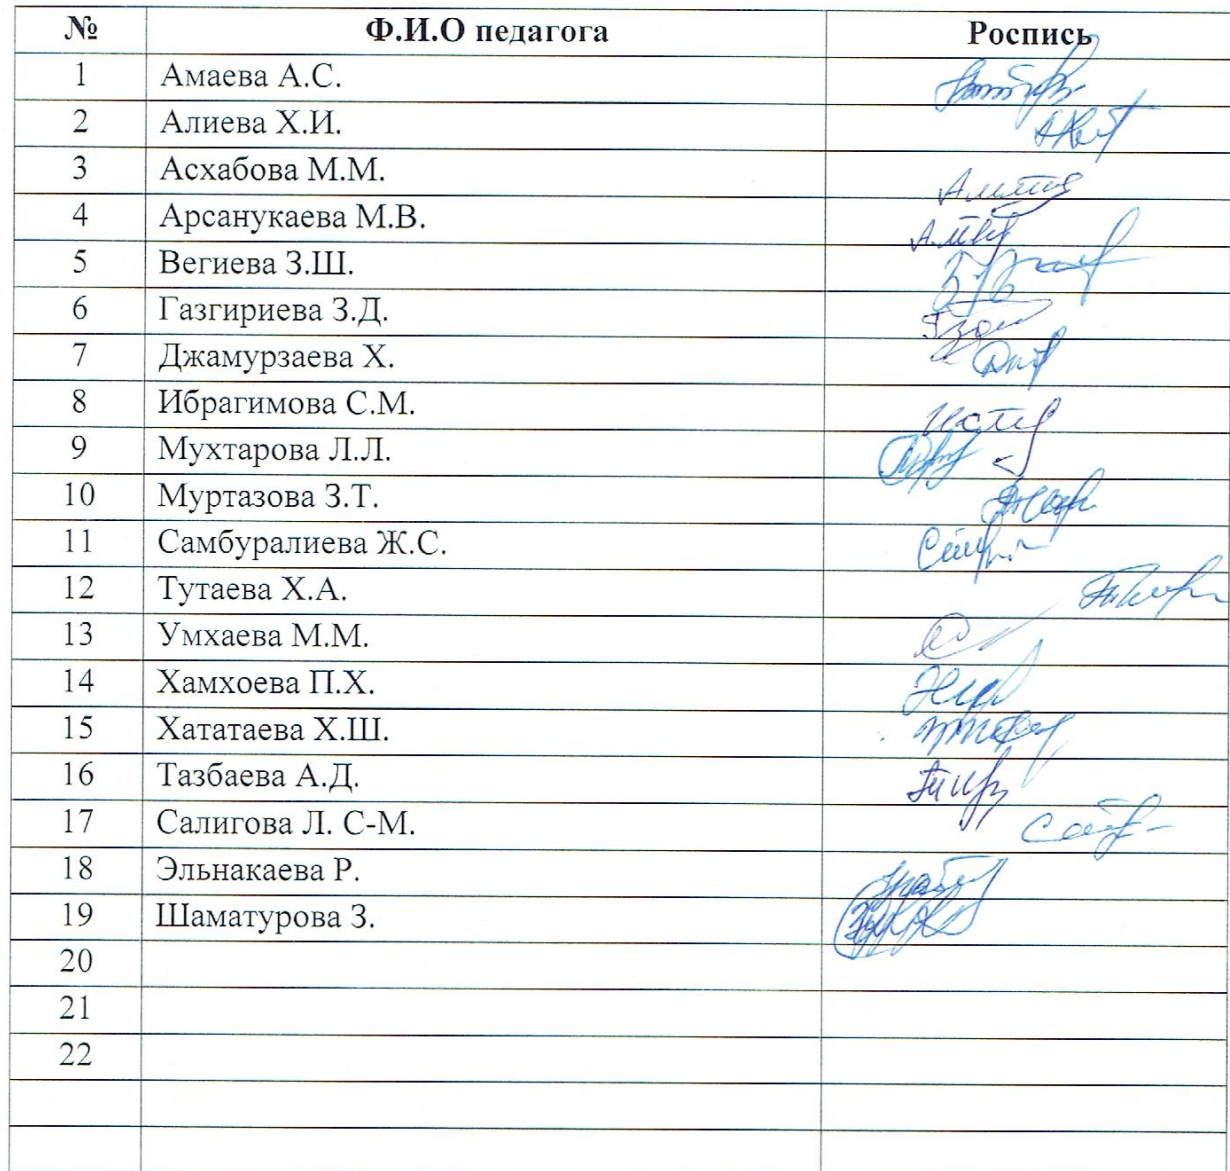 № Ф.И.О педагога Роспись
1 Амаева А.С.
2 Алиева Х.И.
3 Асхабова М.М.
4 Арсанукаева М.В.
5 Вегиева З.Ш.
6 Газгириева З.Д.
7 Джамурзаева Х.
8 Ибрагимова С.М.
9 Мухтарова Л.Л.
10 Муртазова З.Т.
11 Самбуралиева Ж.С.
12 Тутаева Х.А.
13 Умхаева М.М.
14 Хамхоева П.Х.
15 Хататаева Х.Ш.
16 Тазбаева А.Д.
17 Салигова Л. С-М.
18 Эльнакаева Р.
19 Шаматурова З.
20
21
22